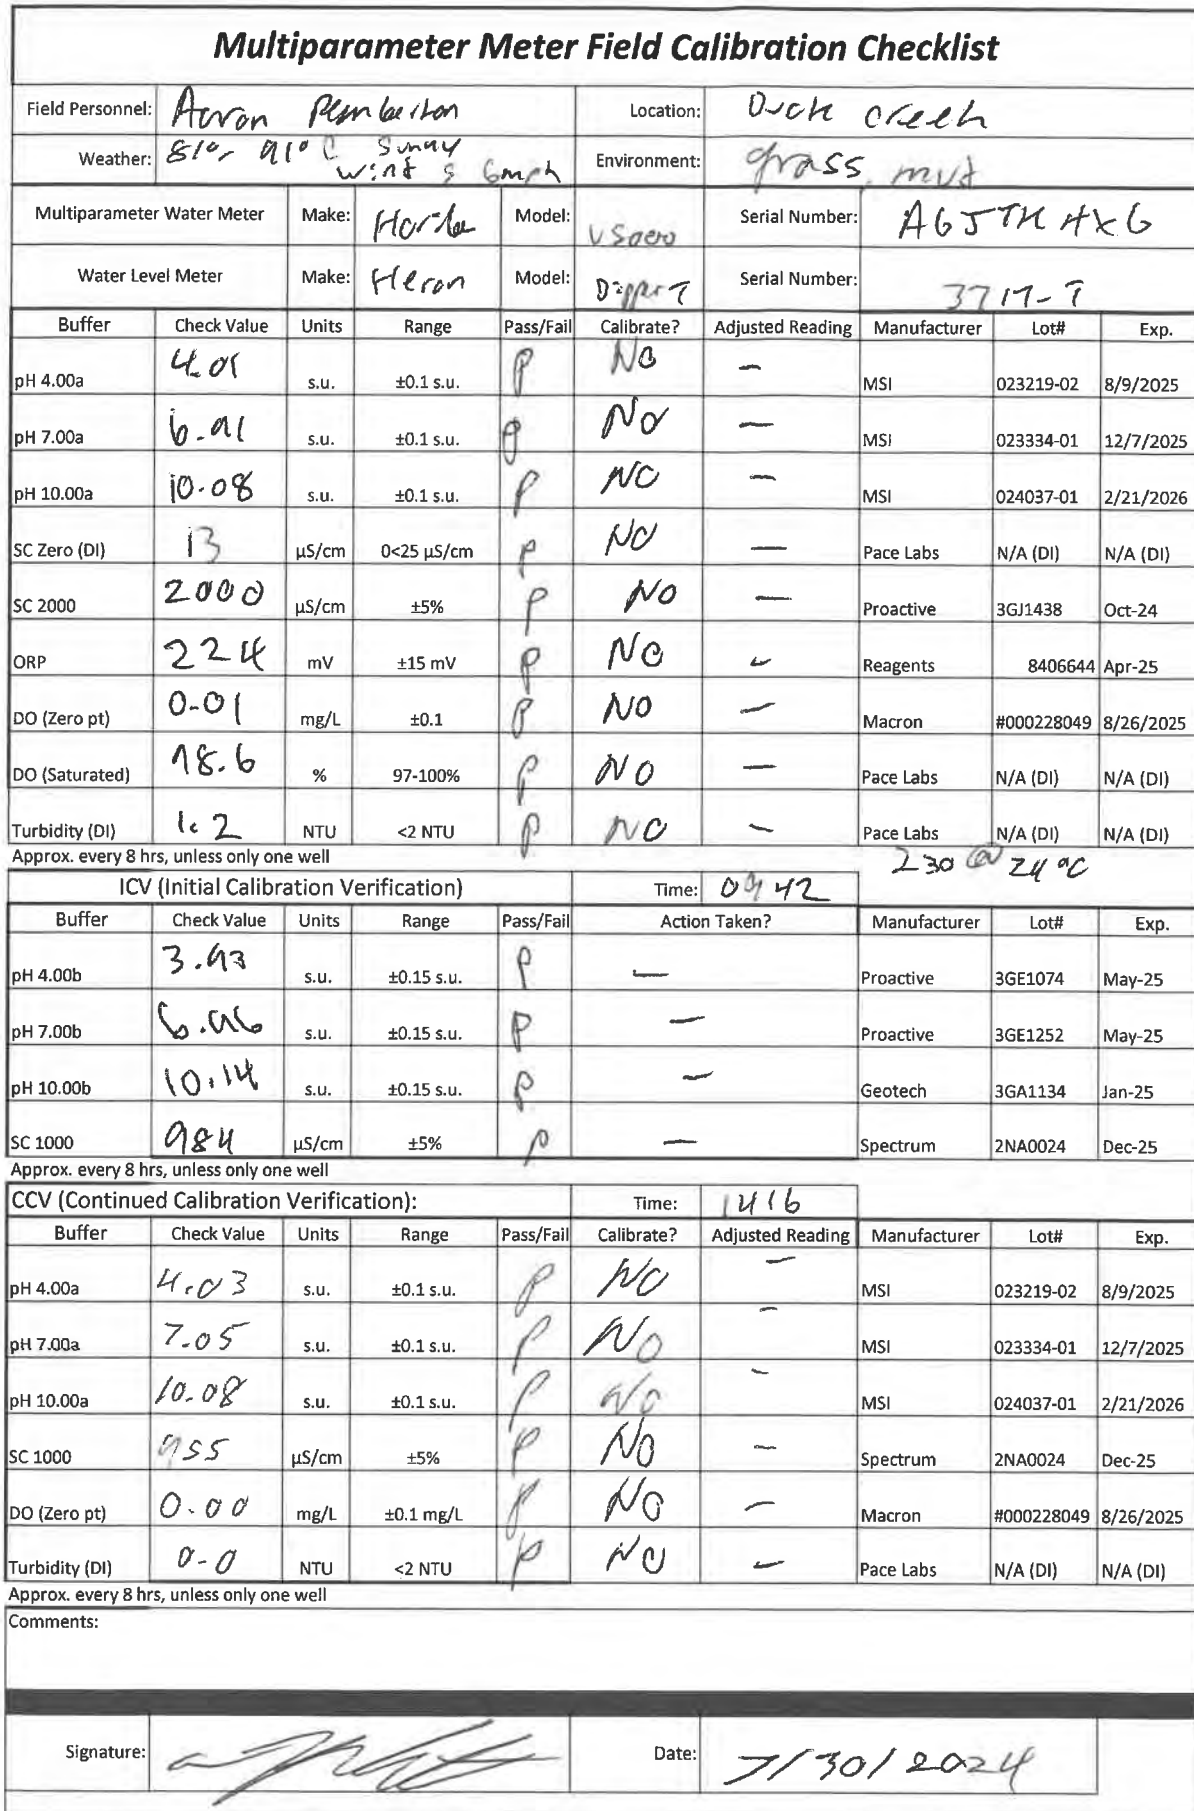 Multiparameter Meter Field Calibration Checklist
Field Personnel: Aaron Pemberton Location: Duck Creek
Weather: 81°- 91° Sunny wind S 6mph Environment: grass, mud
Multiparameter Water Meter Make: Horiba Model: U5000 Serial Number: AG5TKHXG
Water Level Meter Make: Heron Model: Dipper T Serial Number: 3717-T
Buffer Check Value Units Range Pass/Fail Calibrate? Adjusted Reading Manufacturer Lot# Exp.
pH 4.00a 4.01 s.u. ±0.1 s.u. P No — MSI 023219-02 8/9/2025
pH 7.00a 6.91 s.u. ±0.1 s.u. P No — MSI 023334-01 12/7/2025
pH 10.00a 10.08 s.u. ±0.1 s.u. P NO — MSI 024037-01 2/21/2026
SC Zero (DI) 13 µS/cm 0<25 µS/cm P NO — Pace Labs N/A (DI) N/A (DI)
SC 2000 2000 µS/cm ±5% P NO — Proactive 3GJ1438 Oct-24
ORP 224 mV ±15 mV P NO — Reagents 8406644 Apr-25
DO (Zero pt) 0.01 mg/L ±0.1 P NO — Macron #000228049 8/26/2025
DO (Saturated) 98.6 % 97-100% P NO — Pace Labs N/A (DI) N/A (DI)
Turbidity (DI) 1.2 NTU <2 NTU P NO — Pace Labs N/A (DI) N/A (DI)
Approx. every 8 hrs, unless only one well 230 @ 24 °C
ICV (Initial Calibration Verification) Time: 0942
Buffer Check Value Units Range Pass/Fail Action Taken? Manufacturer Lot# Exp.
pH 4.00b 3.93 s.u. ±0.15 s.u. P — Proactive 3GE1074 May-25
pH 7.00b 6.96 s.u. ±0.15 s.u. P — Proactive 3GE1252 May-25
pH 10.00b 10.14 s.u. ±0.15 s.u. P — Geotech 3GA1134 Jan-25
SC 1000 984 µS/cm ±5% P — Spectrum 2NA0024 Dec-25
Approx. every 8 hrs, unless only one well
CCV (Continued Calibration Verification): Time: 1416
Buffer Check Value Units Range Pass/Fail Calibrate? Adjusted Reading Manufacturer Lot# Exp.
pH 4.00a 4.03 s.u. ±0.1 s.u. P NO — MSI 023219-02 8/9/2025
pH 7.00a 7.05 s.u. ±0.1 s.u. P No — MSI 023334-01 12/7/2025
pH 10.00a 10.08 s.u. ±0.1 s.u. P No — MSI 024037-01 2/21/2026
SC 1000 955 µS/cm ±5% P No — Spectrum 2NA0024 Dec-25
DO (Zero pt) 0.00 mg/L ±0.1 mg/L P No — Macron #000228049 8/26/2025
Turbidity (DI) 0-0 NTU <2 NTU P NO — Pace Labs N/A (DI) N/A (DI)
Approx. every 8 hrs, unless only one well
Comments:
Signature: Date: 7/30/2024